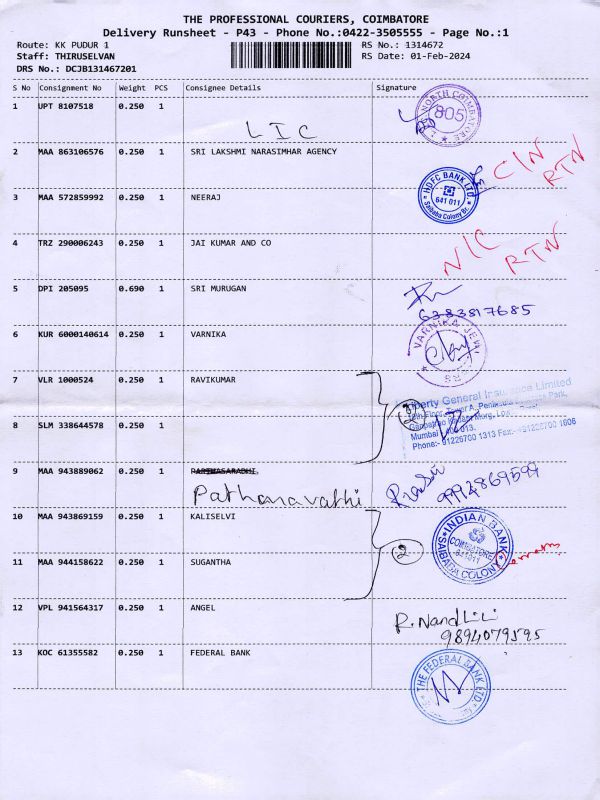 THE PROFESSIONAL COURIERS, COIMBATORE
Delivery Runsheet - P43 - Phone No.:0422-3505555 - Page No.:1
Route: KK PUDUR 1 RS No.: 1314672
Staff: THIRUSELVAN RS Date: 01-Feb-2024
DRS No.: DCJB131467201
S No Consignment No Weight PCS Consignee Details Signature
1 UPT 8107518 0.250 1 NORTH COIMBATORE 805
LIC
2 MAA 863106576 0.250 1 SRI LAKSHMI NARASIMHAR AGENCY C/N RTN
3 MAA 572859992 0.250 1 NEERAJ HDFC BANK LTD 641 011 Saibaba Colony Br.
4 TRZ 290006243 0.250 1 JAI KUMAR AND CO N/C RTN
5 DPI 205095 0.690 1 SRI MURUGAN
6383817685
6 KUR 6000140614 0.250 1 VARNIKA VARNIKA JEW
7 VLR 1000524 0.250 1 RAVIKUMAR
General Insurance Limited
Floor, A, Peninsula Park,
Ganpatrao Marg,
8 SLM 338644578 0.250 1 Mumbai 013.
Phone:- 91226700 1313 Fax:- +91226700 1606
9 MAA 943889062 0.250 1 PARTHASARADHI.
Pathanavathi 9994869599
10 MAA 943869159 0.250 1 KALISELVI INDIAN BANK
COIMBATORE
641011
SAIBABA COLONY
11 MAA 944158622 0.250 1 SUGANTHA 2
12 VPL 941564317 0.250 1 ANGEL R. Nandhini
9894079595
13 KOC 61355582 0.250 1 FEDERAL BANK THE FEDERAL BANK LTD